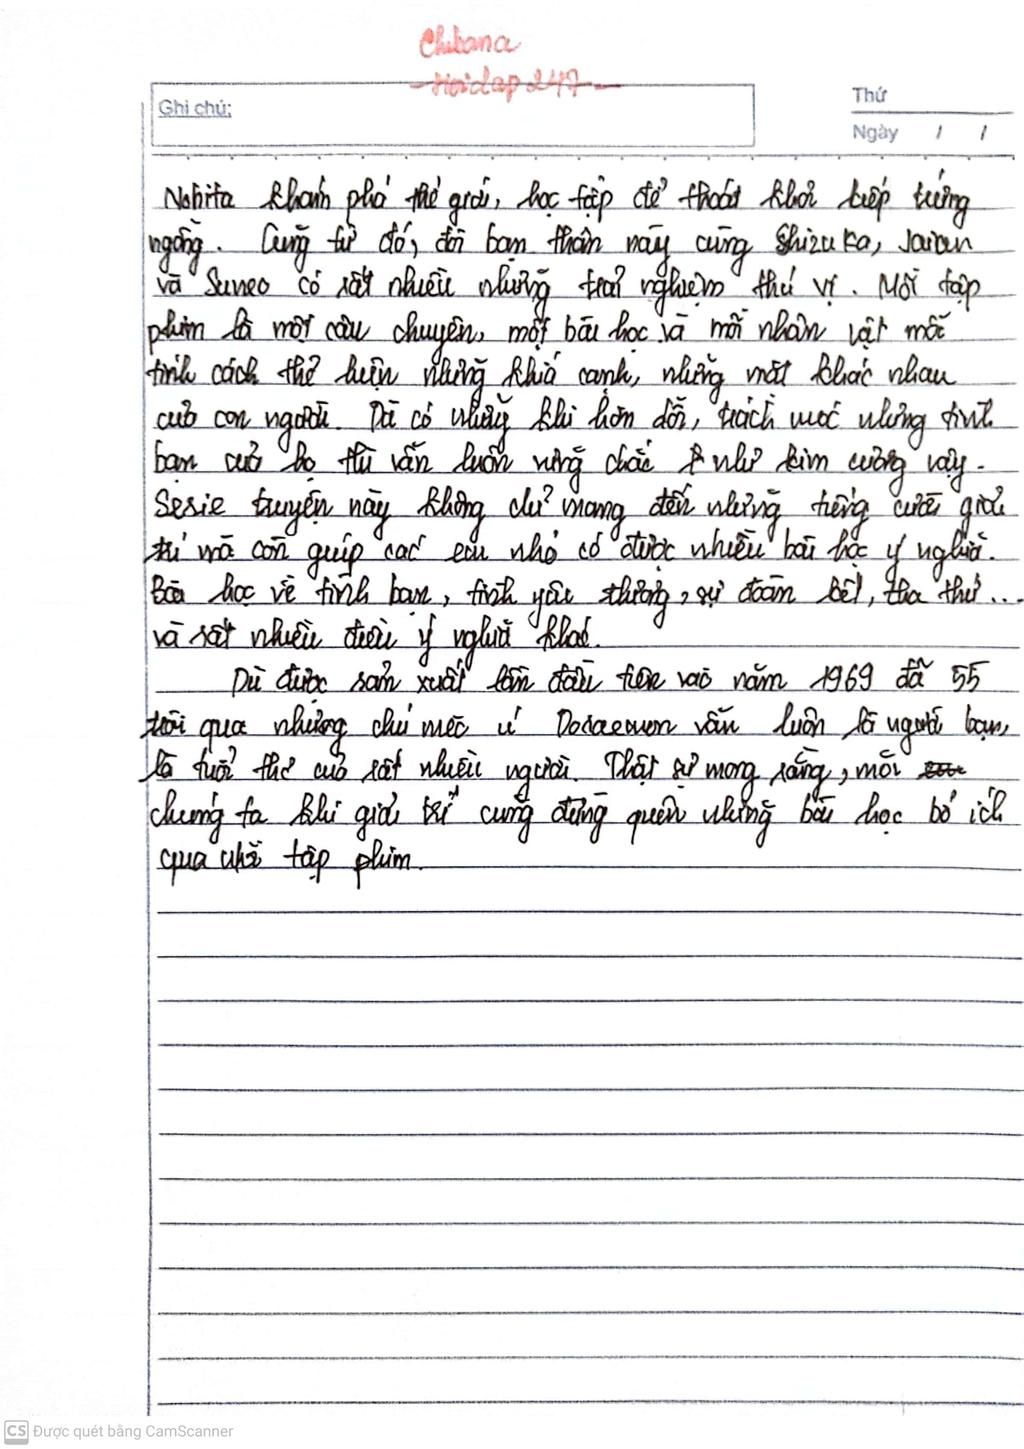 Chibana
Hoidap247
Ghi chú:
Thứ
Ngày / /
Nobita khám phá thế giới, học tập để thoát khỏi kiếp tửng
ngẳng. Cũng từ đó, đôi bạn thân này cùng Shizuka, Jaian
và Suneo có rất nhiều những trải nghiệm thú vị. Mỗi tập
phim là một câu chuyện, một bài học và mỗi nhân vật mỗi
tính cách thể hiện những khía cạnh, những mặt khác nhau
của con người. Dù có những khi hờn dỗi, trách móc nhưng tình
bạn của họ thì vẫn luôn vững chắc như kim cương vậy.
Serie truyện này không chỉ mang đến những tiếng cười giải
trí mà còn giúp các em nhỏ có được nhiều bài học ý nghĩa.
Bài học về tình bạn, tình yêu thương, sự đoàn kết, tha thứ...
và rất nhiều điều ý nghĩa khác.
Dù được sản xuất lần đầu tiên vào năm 1969 đã 55
trôi qua nhưng chú mèo ú Doraemon vẫn luôn là người bạn,
là tuổi thơ của rất nhiều người. Thật sự mong rằng, mỗi
chúng ta khi giải trí cũng đừng quên những bài học bổ ích
qua mỗi tập phim.
CS Được quét bằng CamScanner